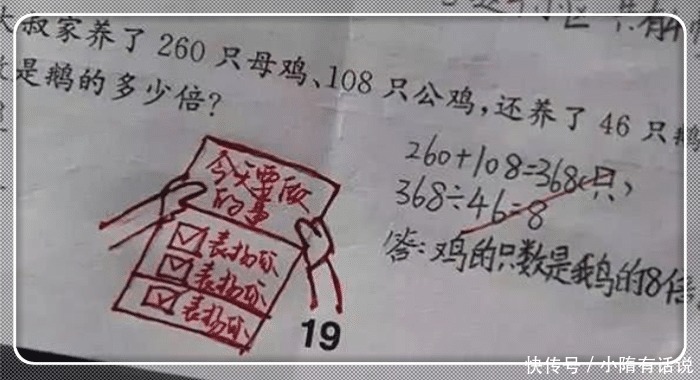 大叔家养了 260 只母鸡、108 只公鸡，还养了 46 只鹅
是鹅的多少倍？
260+108=368(只)
368÷46=8
答：鸡的只数是鹅的8倍
今天要做
的事
表扬你
表扬你
表扬你
19
快传号／小隋有话说